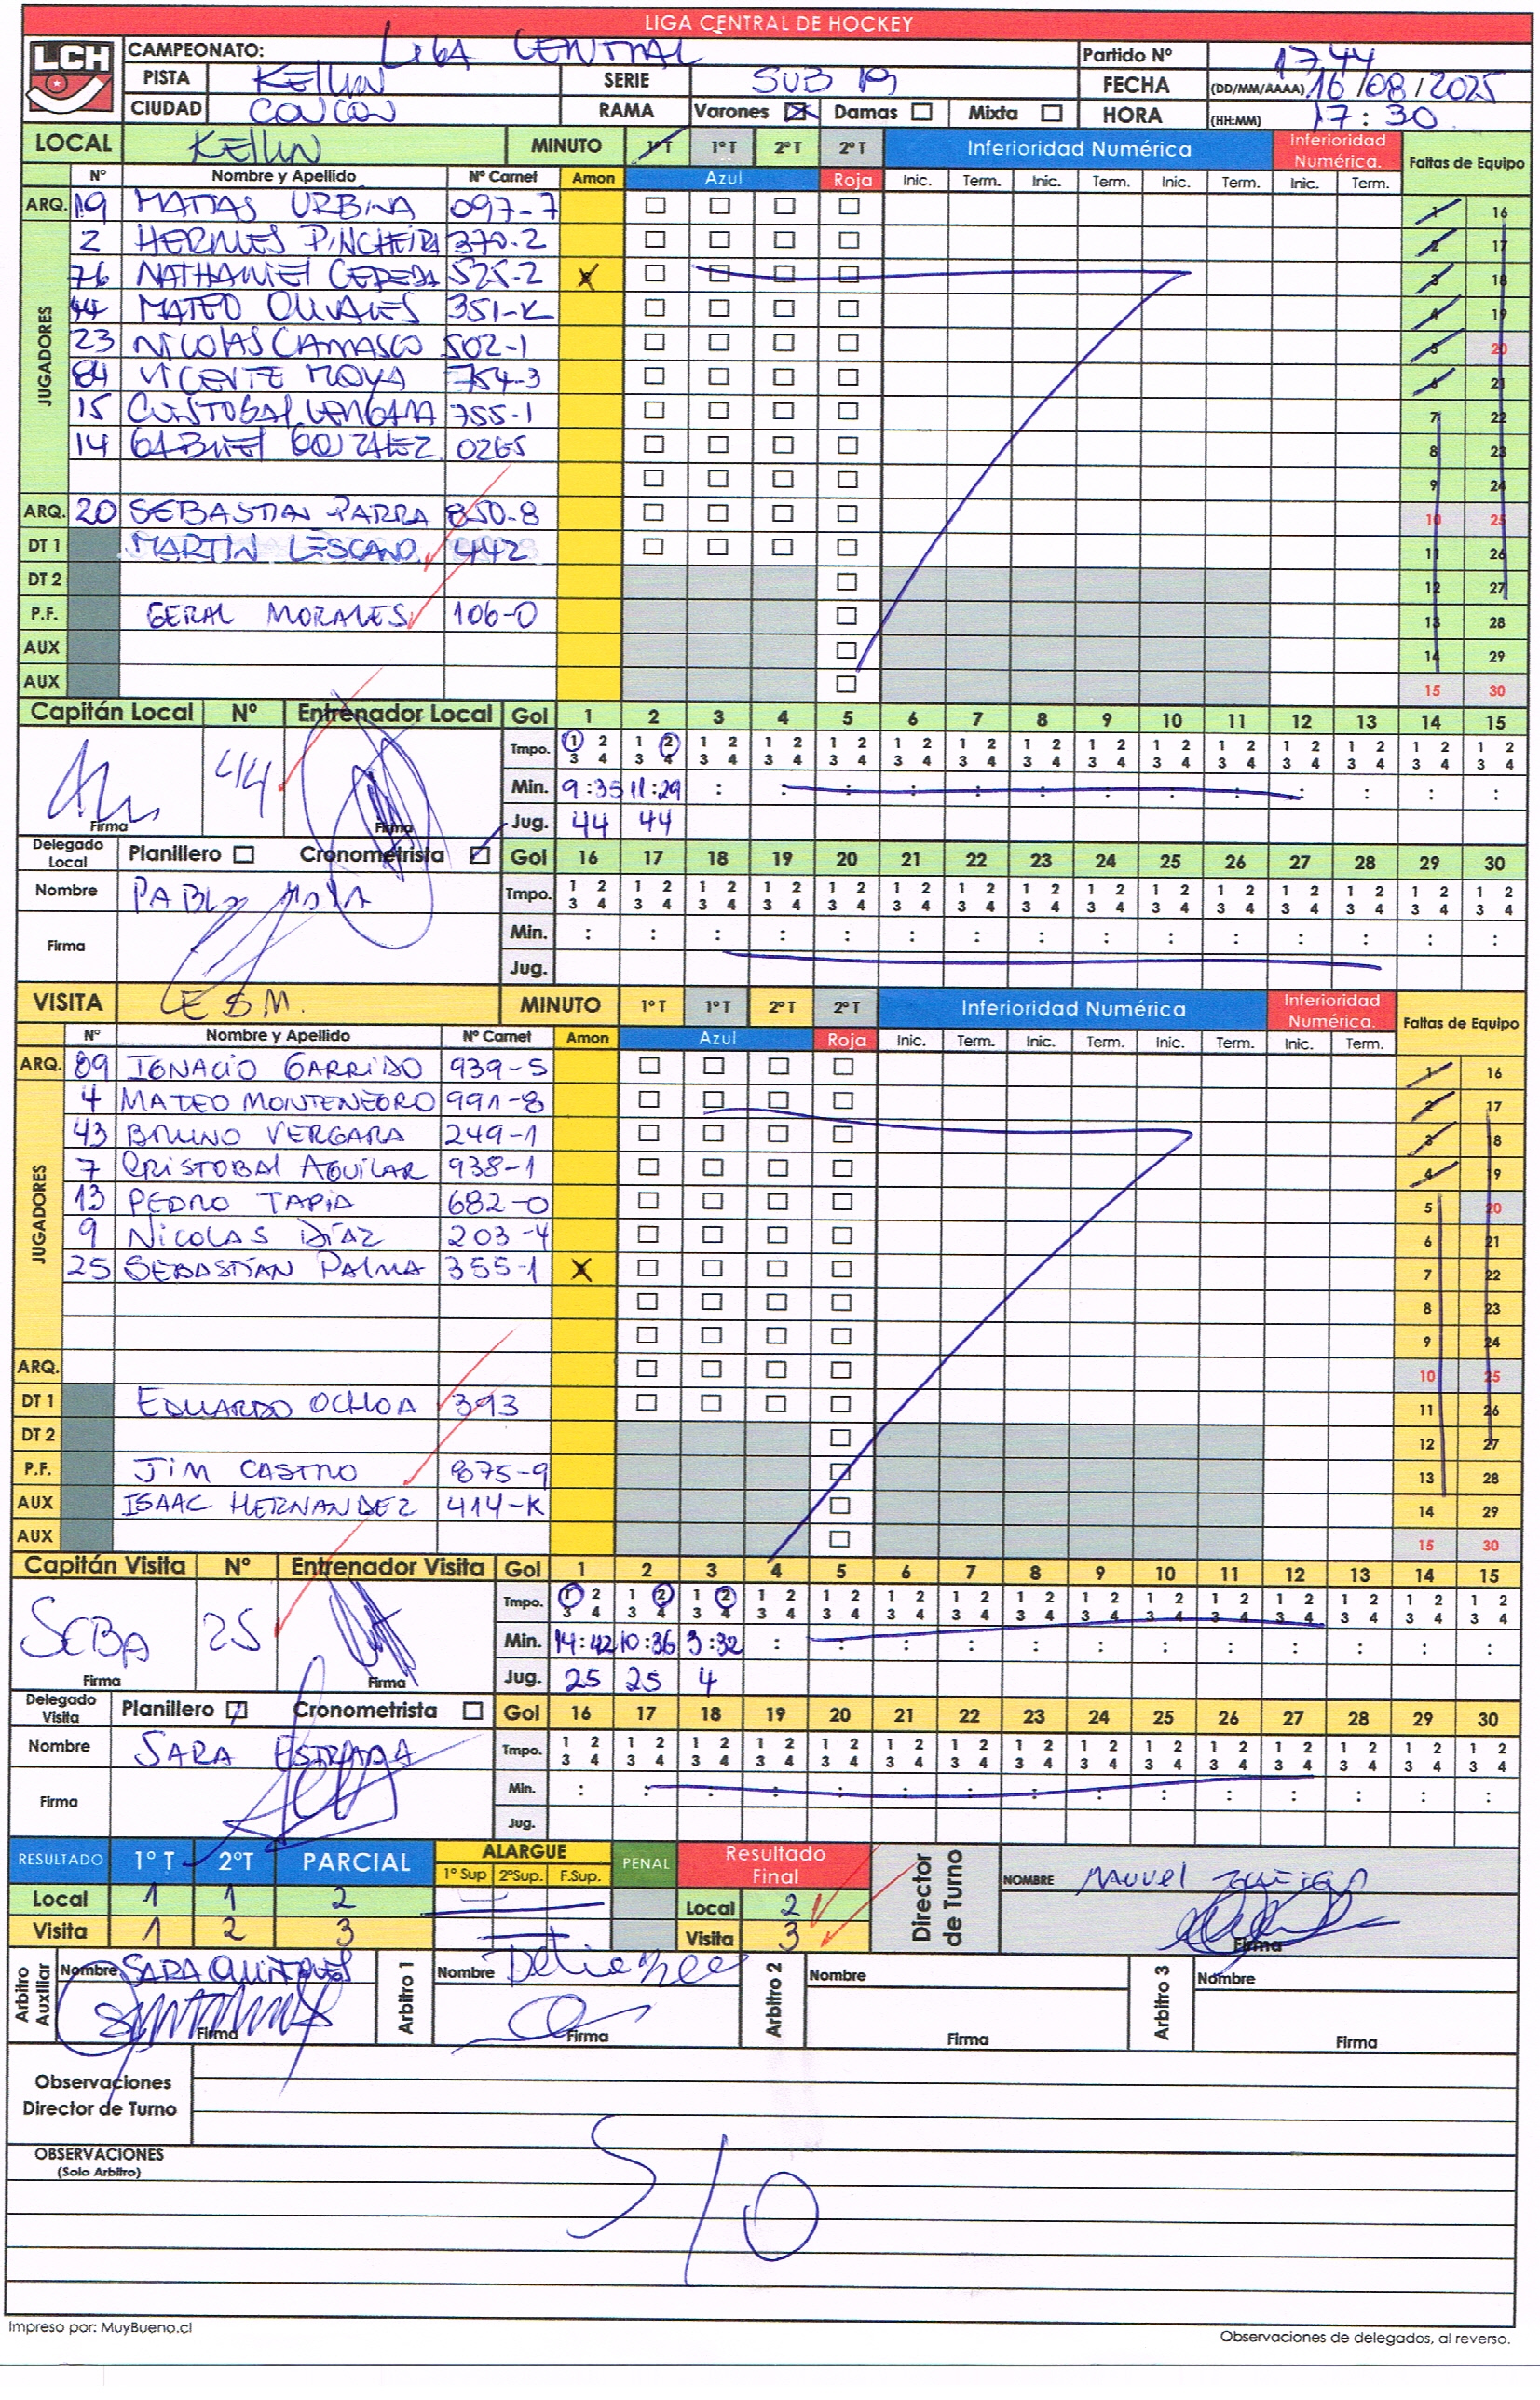 LIGA CENTRAL DE HOCKEY
LCH
CAMPEONATO: LIGA CENTRAL Partido Nº 1744
PISTA KELLUN SERIE SUB 19 FECHA (DD/MM/AAAA) 16/08/2025
CIUDAD CONCON RAMA Varones ☒ Damas ☐ Mixta ☐ HORA (HH:MM) 17:30
LOCAL KELLUN MINUTO 1ºT 1ºT 2ºT 2ºT Inferioridad Numérica Inferioridad Numérica. Faltas de Equipo
Nº Nombre y Apellido Nº Carnet Amon Azul Roja Inic. Term. Inic. Term. Inic. Term. Inic. Term.
ARQ. 19 MATIAS URBINA 097-7 1 16
JUGADORES
2 HERMES PINCHEIRA 370-2 2 17
76 NATHANIEL CEPEDA 525-2 X 3 18
44 MATEO OLIVARES 351-K 4 19
23 NICOLAS CAMASCO 502-1 5 20
84 VICENTE MOYA 754-3 6 21
15 CRISTOBAL LENGANA 755-1 7 22
14 GABRIEL GONZALEZ 0265 8 23
9 24
ARQ. 20 SEBASTIAN PARRA 850-8 10 25
DT 1 MARTIN LESCANO 442 11 26
DT 2 12 27
P.F. GERAL MORALES 106-0 13 28
AUX 14 29
AUX 15 30
Capitán Local Nº Entrenador Local Gol 1 2 3 4 5 6 7 8 9 10 11 12 13 14 15
Tmpo. 1 2 3 4 1 2 3 4 1 2 3 4 1 2 3 4 1 2 3 4 1 2 3 4 1 2 3 4 1 2 3 4 1 2 3 4 1 2 3 4 1 2 3 4 1 2 3 4 1 2 3 4 1 2 3 4 1 2 3 4
44 Min. 9:35 11:29
Firma Firma Jug. 44 44
Delegado Local Planillero ☐ Cronometrista ☑ Gol 16 17 18 19 20 21 22 23 24 25 26 27 28 29 30
Nombre PABLO MOYA Tmpo. 1 2 3 4 1 2 3 4 1 2 3 4 1 2 3 4 1 2 3 4 1 2 3 4 1 2 3 4 1 2 3 4 1 2 3 4 1 2 3 4 1 2 3 4 1 2 3 4 1 2 3 4 1 2 3 4 1 2 3 4
Firma Min.
Jug.
VISITA CESM. MINUTO 1ºT 1ºT 2ºT 2ºT Inferioridad Numérica Inferioridad Numérica. Faltas de Equipo
Nº Nombre y Apellido Nº Carnet Amon Azul Roja Inic. Term. Inic. Term. Inic. Term. Inic. Term.
ARQ. 89 IGNACIO GARRIDO 939-5 1 16
JUGADORES
4 MATEO MONTENEGRO 991-8 2 17
43 BRUNO VERGARA 249-1 3 18
7 CRISTOBAL AGUILAR 938-1 4 19
13 PEDRO TAPIA 682-0 5 20
9 NICOLAS DÍAZ 203-4 6 21
25 SEBASTIAN PALMA 355-1 X 7 22
8 23
9 24
ARQ. 10 25
DT 1 EDUARDO OCHOA 393 11 26
DT 2 12 27
P.F. JIM CASTRO 875-9 13 28
AUX ISAAC HERNANDEZ 414-K 14 29
AUX 15 30
Capitán Visita Nº Entrenador Visita Gol 1 2 3 4 5 6 7 8 9 10 11 12 13 14 15
Tmpo. 1 2 3 4 1 2 3 4 1 2 3 4 1 2 3 4 1 2 3 4 1 2 3 4 1 2 3 4 1 2 3 4 1 2 3 4 1 2 3 4 1 2 3 4 1 2 3 4 1 2 3 4 1 2 3 4 1 2 3 4
SEBA 25 Min. 14:42 10:36 3:32
Firma Firma Jug. 25 25 4
Delegado Visita Planillero ☑ Cronometrista ☐ Gol 16 17 18 19 20 21 22 23 24 25 26 27 28 29 30
Nombre SARA ESTRADA Tmpo. 1 2 3 4 1 2 3 4 1 2 3 4 1 2 3 4 1 2 3 4 1 2 3 4 1 2 3 4 1 2 3 4 1 2 3 4 1 2 3 4 1 2 3 4 1 2 3 4 1 2 3 4 1 2 3 4 1 2 3 4
Firma Min.
Jug.
RESULTADO 1º T 2ºT PARCIAL ALARGUE 1º Sup 2ºSup. F.Sup. PENAL Resultado Final Director de Turno NOMBRE MANUEL
Local 1 1 2 Local 2
Visita 1 2 3 Visita 3 Firma
Arbitro Auxiliar Nombre SARA Arbitro 1 Nombre Arbitro 2 Nombre Arbitro 3 Nombre
Firma Firma Firma Firma
Observaciones
Director de Turno
OBSERVACIONES
(Solo Arbitro)
S/O
Impreso por: MuyBueno.cl
Observaciones de delegados, al reverso.